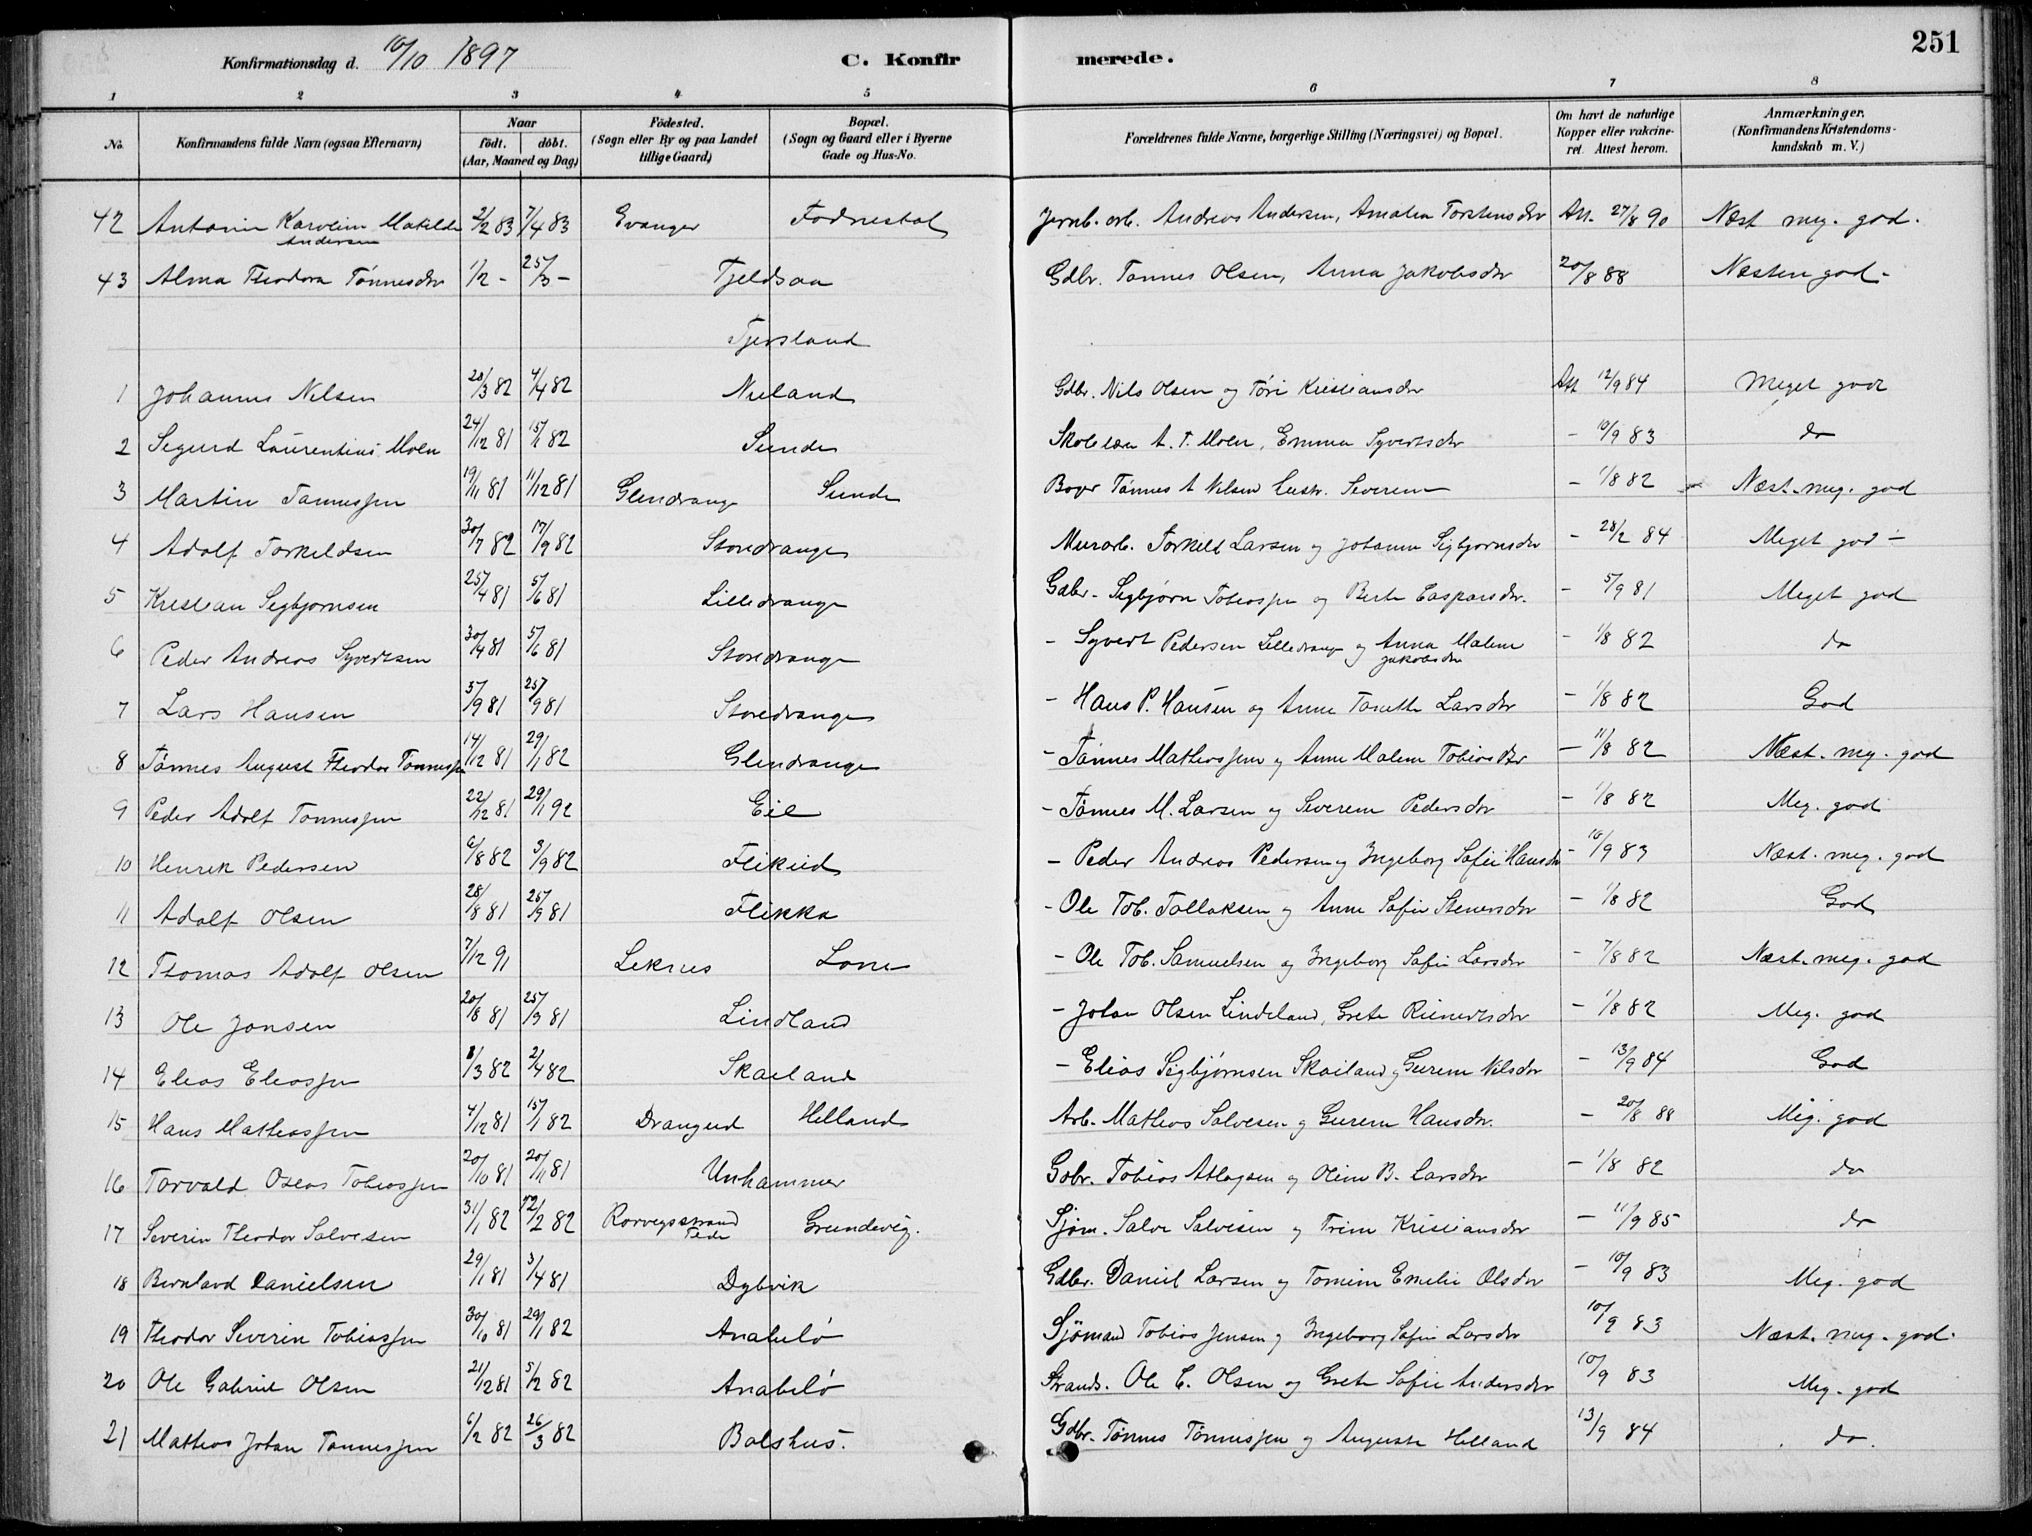 Konfirmationsdag d. 10/10 1897 C. Konfirmerede. 251
1 2 3 4 5 6 7 8
No. Konfirmandens fulde Navn (ogsaa Efternavn) Naar født. døbt. (Aar, Maaned og Dag) Fødested. (Sogn eller By og paa Landet tillige Gaard) Bopæl. (Sogn og Gaard eller i Byerne Gade og Hus-No. Forældrenes fulde Navne, borgerlige Stilling (Næringsvei) og Bopæl. Om havt de naturlige Kopper eller vakcineret. Attest herom. Anmærkninger. (Konfirmandens Kristendomskundskab m. V.)
42 Antonie Karoline Matilde Andersen 2/2 83 7/4 83 Evanger Fodnestol Jernb. arb. Andreas Andersen, Amalia Torstensdr Att. 27/8 90 Næst meg. god.
43 Alma Theodora Tønnesdr 1/2 - 25/3 - Fjeldsaa Gdbr. Tønnes Olsen, Anna Jakobsdr 20/8 88 Næsten god -
Fjersland
1 Johannes Nilsen 20/3 82 4/4 82 Nuland Gdbr. Nils Olsen og Tøri Kristiansdr Att 12/9 84 Meget god
2 Sigurd Laurentius Moen 24/12 81 15/1 82 Sunde A. T. Moen, Emma Syvertsdr - 10/9 83 do
3 Martin Tønnessen 19/11 81 11/12 81 Glendrange Sunde Tønnes A Nilsen Severine - 1/8 82 Næst. meg. god
4 Adolf Torkeldsen 30/7 82 17/9 82 Storedrange Murarb. Torkild Larsen og Johanne Sigbjørnsdr - 28/2 84 Meget god -
5 Kristian Sigbjørnsen 25/4 81 5/6 81 Lilledrange Gdbr. Sigbjørn Tobiassen og Berte Caspersdr. - 5/9 81 Meget god
6 Peder Andreas Syvertsen 30/4 81 5/6 81 Storedrange - Syvert Pedersen Lilledrange og Anna Malene Jakobsdr - 1/8 82 do
7 Lars Hansen 5/9 81 25/9 81 Storedrange - Hans P. Hansen og Anne Larsdr - 1/8 82 God
8 Tønnes August Theodor Tønnessen 14/12 81 29/1 82 Glendrange - Tønnes Mathiassen og Anne Malene Tobiasdr - 11/8 82 Næst. meg. god
9 Peder Adolf Tønnessen 22/12 81 29/1 92 Eie - Tønnes M. Larsen og Severine Pedersdr - 1/8 82 Meg. god
10 Henrik Pedersen 6/8 82 3/9 82 Flikeid - Peder Andreas Pedersen og Ingeborg Sofie Hansdr - 10/9 83 Næst. meg. god
11 Adolf Olsen 28/8 81 25/9 81 Flikka - Ole Tob. Tollaksen og Anne Sofie Stenersdr - 1/8 82 God
12 Thomas Adolf Olsen 7/12 91 Leknes Lone - Ole Tob. Samuelsen og Ingeborg Sofie Larsdr - 7/8 82 Næst. meg. god
13 Ole Jansen 20/8 81 25/9 81 Lindland - Johan Olsen Lindeland, Grete Reinertsdr - 1/8 82 Meg. god
14 Elias Eliassen 8/3 82 2/4 82 Skaeland - Elias Sigbjørnsen Skaeland og Gurine Nilsdr - 13/9 84 God
15 Hans Mathiassen 4/12 81 15/1 82 Drangeid Helland Arb. Mathias Salvesen og Gurine Hansdr. - 20/8 88 Meg. god
16 Torvald Oseas Tobiassen 20/10 81 20/11 81 Unhammer Gdbr. Tobias Atlagsen og Oline B. Larsdr - 1/8 82 do
17 Severin Theodor Salvesen 31/1 82 12/2 82 Rorvegsstrand Grundevig. Sjøm. Salve Salvesen og Trine Kristiansdr - 11/9 85 do
18 Bernhard Danielsen 29/1 81 3/4 81 Dybvik Gdbr. Daniel Larsen og Tomine Emelie Olsdr - 10/9 83 Meg. god
19 Theodor Severin Tobiassen 30/10 81 29/1 82 Anabelø Sjømand Tobias Jensen og Ingeborg Sofie Larsdr 10/9 83 Næst. meg. god.
20 Ole Gabriel Olsen 21/12 81 5/2 82 Anabelø Strands. Ole C. Olsen og Grete Sofie Andersdr 10/9 83 Meg. god
21 Mathias Johan Tønnessen 6/2 82 26/3 82 Bolshus. Gdbr. Tønnes Tønnessen og Auguste Helland 13/9 84 do.